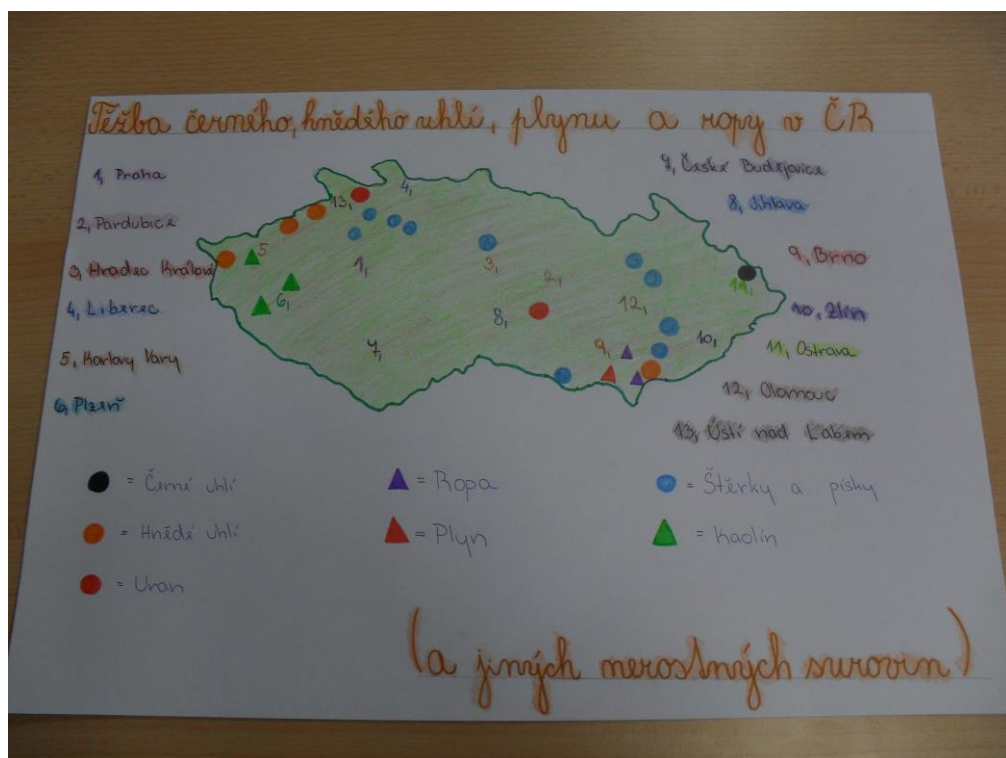 Těžba černého, hnědého uhlí, plynu a ropy v ČR
1, Praha
2, Pardubice
3, Hradec Králové
4, Liberec
5, Karlovy Vary
6, Plzeň
7, České Budějovice
8, Jihlava
9, Brno
10, Zlín
11, Ostrava
12, Olomouc
13, Ústí nad Labem
4,
13,
5
1,
3,
2,
11,
6,
8,
12,
7,
9,
10,
= Černé uhlí
= Hnědé uhlí
= Uran
= Ropa
= Plyn
= Štěrky a písky
= Kaolín
(a jiných nerostných surovin)